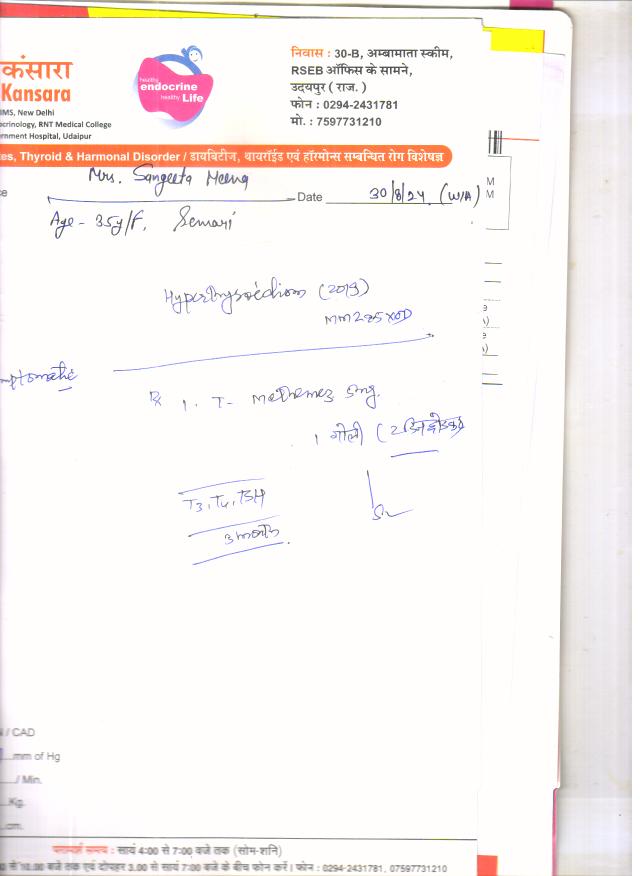 कंसारा
Kansara
IMS, New Delhi
crinology, RNT Medical College
rnment Hospital, Udaipur
healthy
endocrine
healthy Life
निवास : 30-B, अम्बामाता स्कीम,
RSEB ऑफिस के सामने,
उदयपुर ( राज. )
फोन : 0294-2431781
मो. : 7597731210
es, Thyroid & Harmonal Disorder / डायबिटीज, थायरॉईड एवं हॉरमोन्स सम्बन्धित रोग विशेषज्ञ
Mrs. Sangeeta Meena
Date 30/8/24 (W/A)
Age - 35y/F, Semari
Hyperthyroidism (2019)
mptomatic
Rx 1. T- 5mg.
1 गोली (2
T3, T4, TSH
3 month
/ CAD
mm of Hg
/ Min.
Kg.
cm.
परामर्श समय : सायं 4:00 से 7:00 बजे तक (सोम-शनि)
से 10.00 बजे तक एवं दोपहर 3.00 से सायं 7:00 बजे के बीच फोन करें। फोन : 0294-2431781, 07597731210